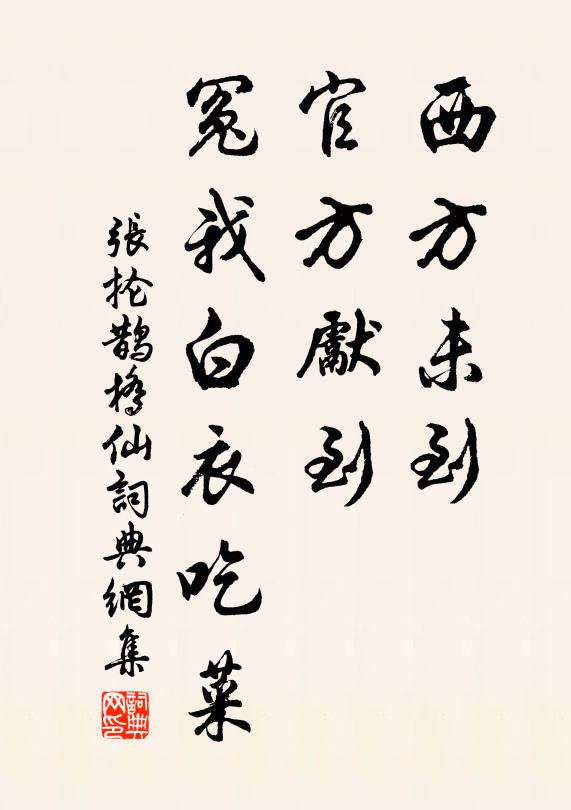 西方未到
官方獻到
冤我白衣吃菜
張抡鵲橋仙詞典網集
詞典网印